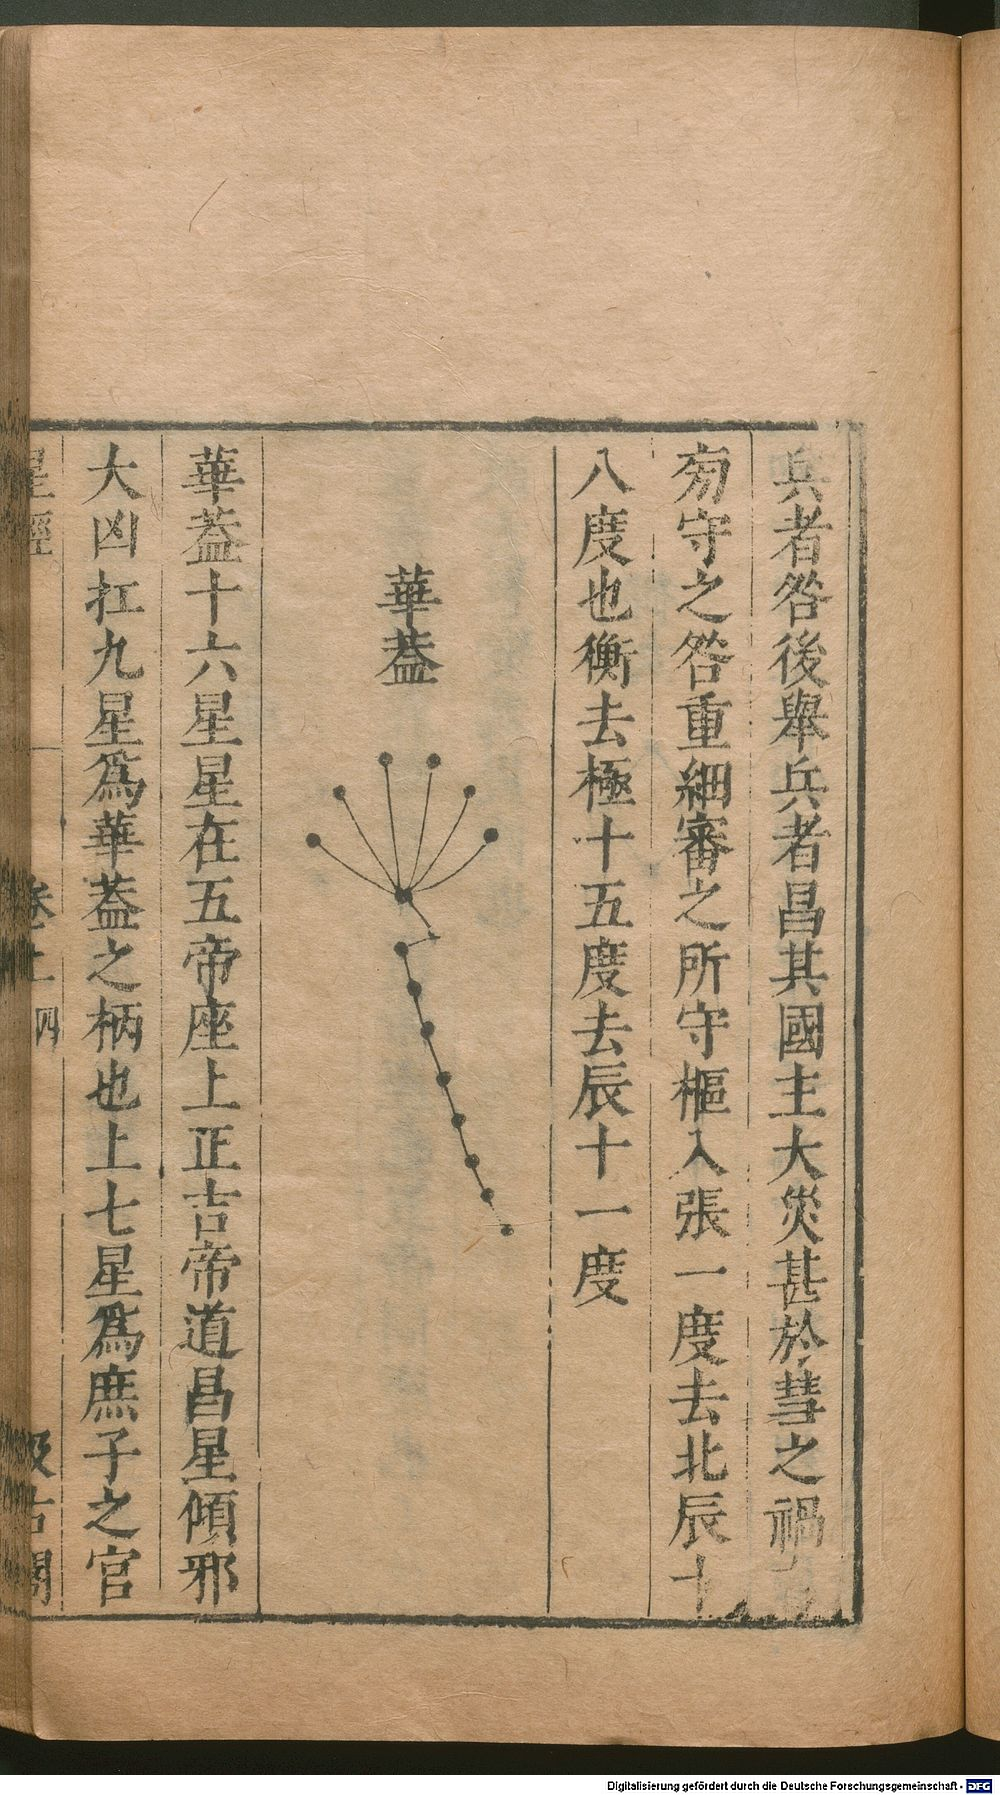 兵者咎後舉兵者昌其國主大災甚於彗之禍
芴守之咎重細審之所守樞入張一度去北辰十
八度也衡去極十五度去辰十一度
華蓋
華蓋十六星星在五帝座上正吉帝道昌星傾邪
大凶扛九星爲華蓋之柄也上七星爲庶子之官
星經
卷上
四
汲古閣
Digitalisierung gefördert durch die Deutsche Forschungsgemeinschaft - DFG